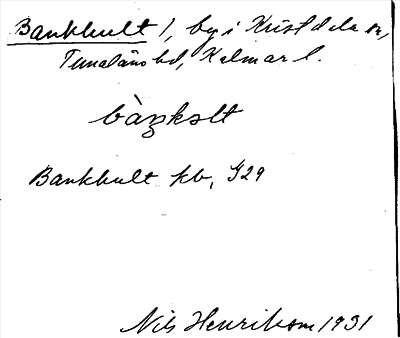 Bankhult 1, by i Kristdala sn,
Tunaläns hd, Kalmar l.
bàŋkɘlt
Bankhult kb, J29
Nils Henrikson 1931